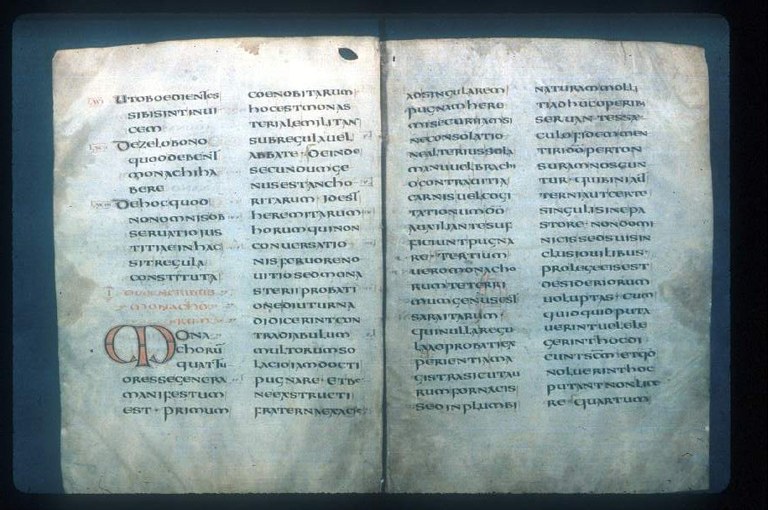 UTOBOEDIENTES
SIBISINTINUI
CEM
DEZELOBONO
QUODDEBENT
MONACHIHA
BERE
DEHOCQUOD
NONOMNISOB
SERUATIOIUS
TITIAEINHAC
SITREGULA
CONSTITUTA
DEGENERIBUS
MONACHO
RUM
MONA
CHORŪ
QUATTU
ORESSEGENERA
MANIFESTUM
EST · PRIMUM
COENOBITARUM
HOCESTMONAS
TERIALEMILITAN
SUBREGULAUEL
ABBATE · DEINDE
SECUNDUMGE
NUSESTANCHO
RITARUM · IDEST
HEREMITARUM
HORUMQUINON
CONUERSATIO
NISFERUORENO
UITIOSEDMONA
STERIIPROBATI
ONEDIUTURNA
DIDICERINTCON
TRADIABULUM
MULTORUMSO
LACIOIAMDOCTI
PUGNARE · ETBE
NEEXSTRUCTI
FRATERNAEXACIE
ADSINGULAREM
PUGNAMHERE
MISECURIIAMSI
NECONSOLATIO
NEALTERIUSSOLA
MANUUELBRACHI
OCONTRAUITIA
CARNISUELCOGI
TATIONUMDŌ
AUXILIANTESUF
FICIUNTPUGNA
RE · TERTIUM
UEROMONACHO
RUMTETERRI
MUMGENUSEST
SARAITARUM
QUINULLAREGU
LAADPROBATIEX
PERIENTIAMA
GISTRASICUTAU
RUMFORNACIS
SEDINPLUMBI
NATURAMMOLLI
TIADHUCOPERIB
SERUAN · TESSAE
CULOFIDEMMEN
TIRIDŌPERTON
SURAMNOSCUN
TUR · QUIBINIAUT
TERNIAUTCERTE
SINGULISINEPA
STORE · NONDOMI
NICISSEDSUISIN
CLUSIOUILIBUS ·
PROLEGEEISEST
DESIDERIORUM
UOLUPTAS · CUM
QUIDQUIDPUTA
UERINTUELELE
GERINTHOCDI
CUNTSCMETQD
NOLUERINTHOC
PUTANTNONLICE
RE · QUARTUM